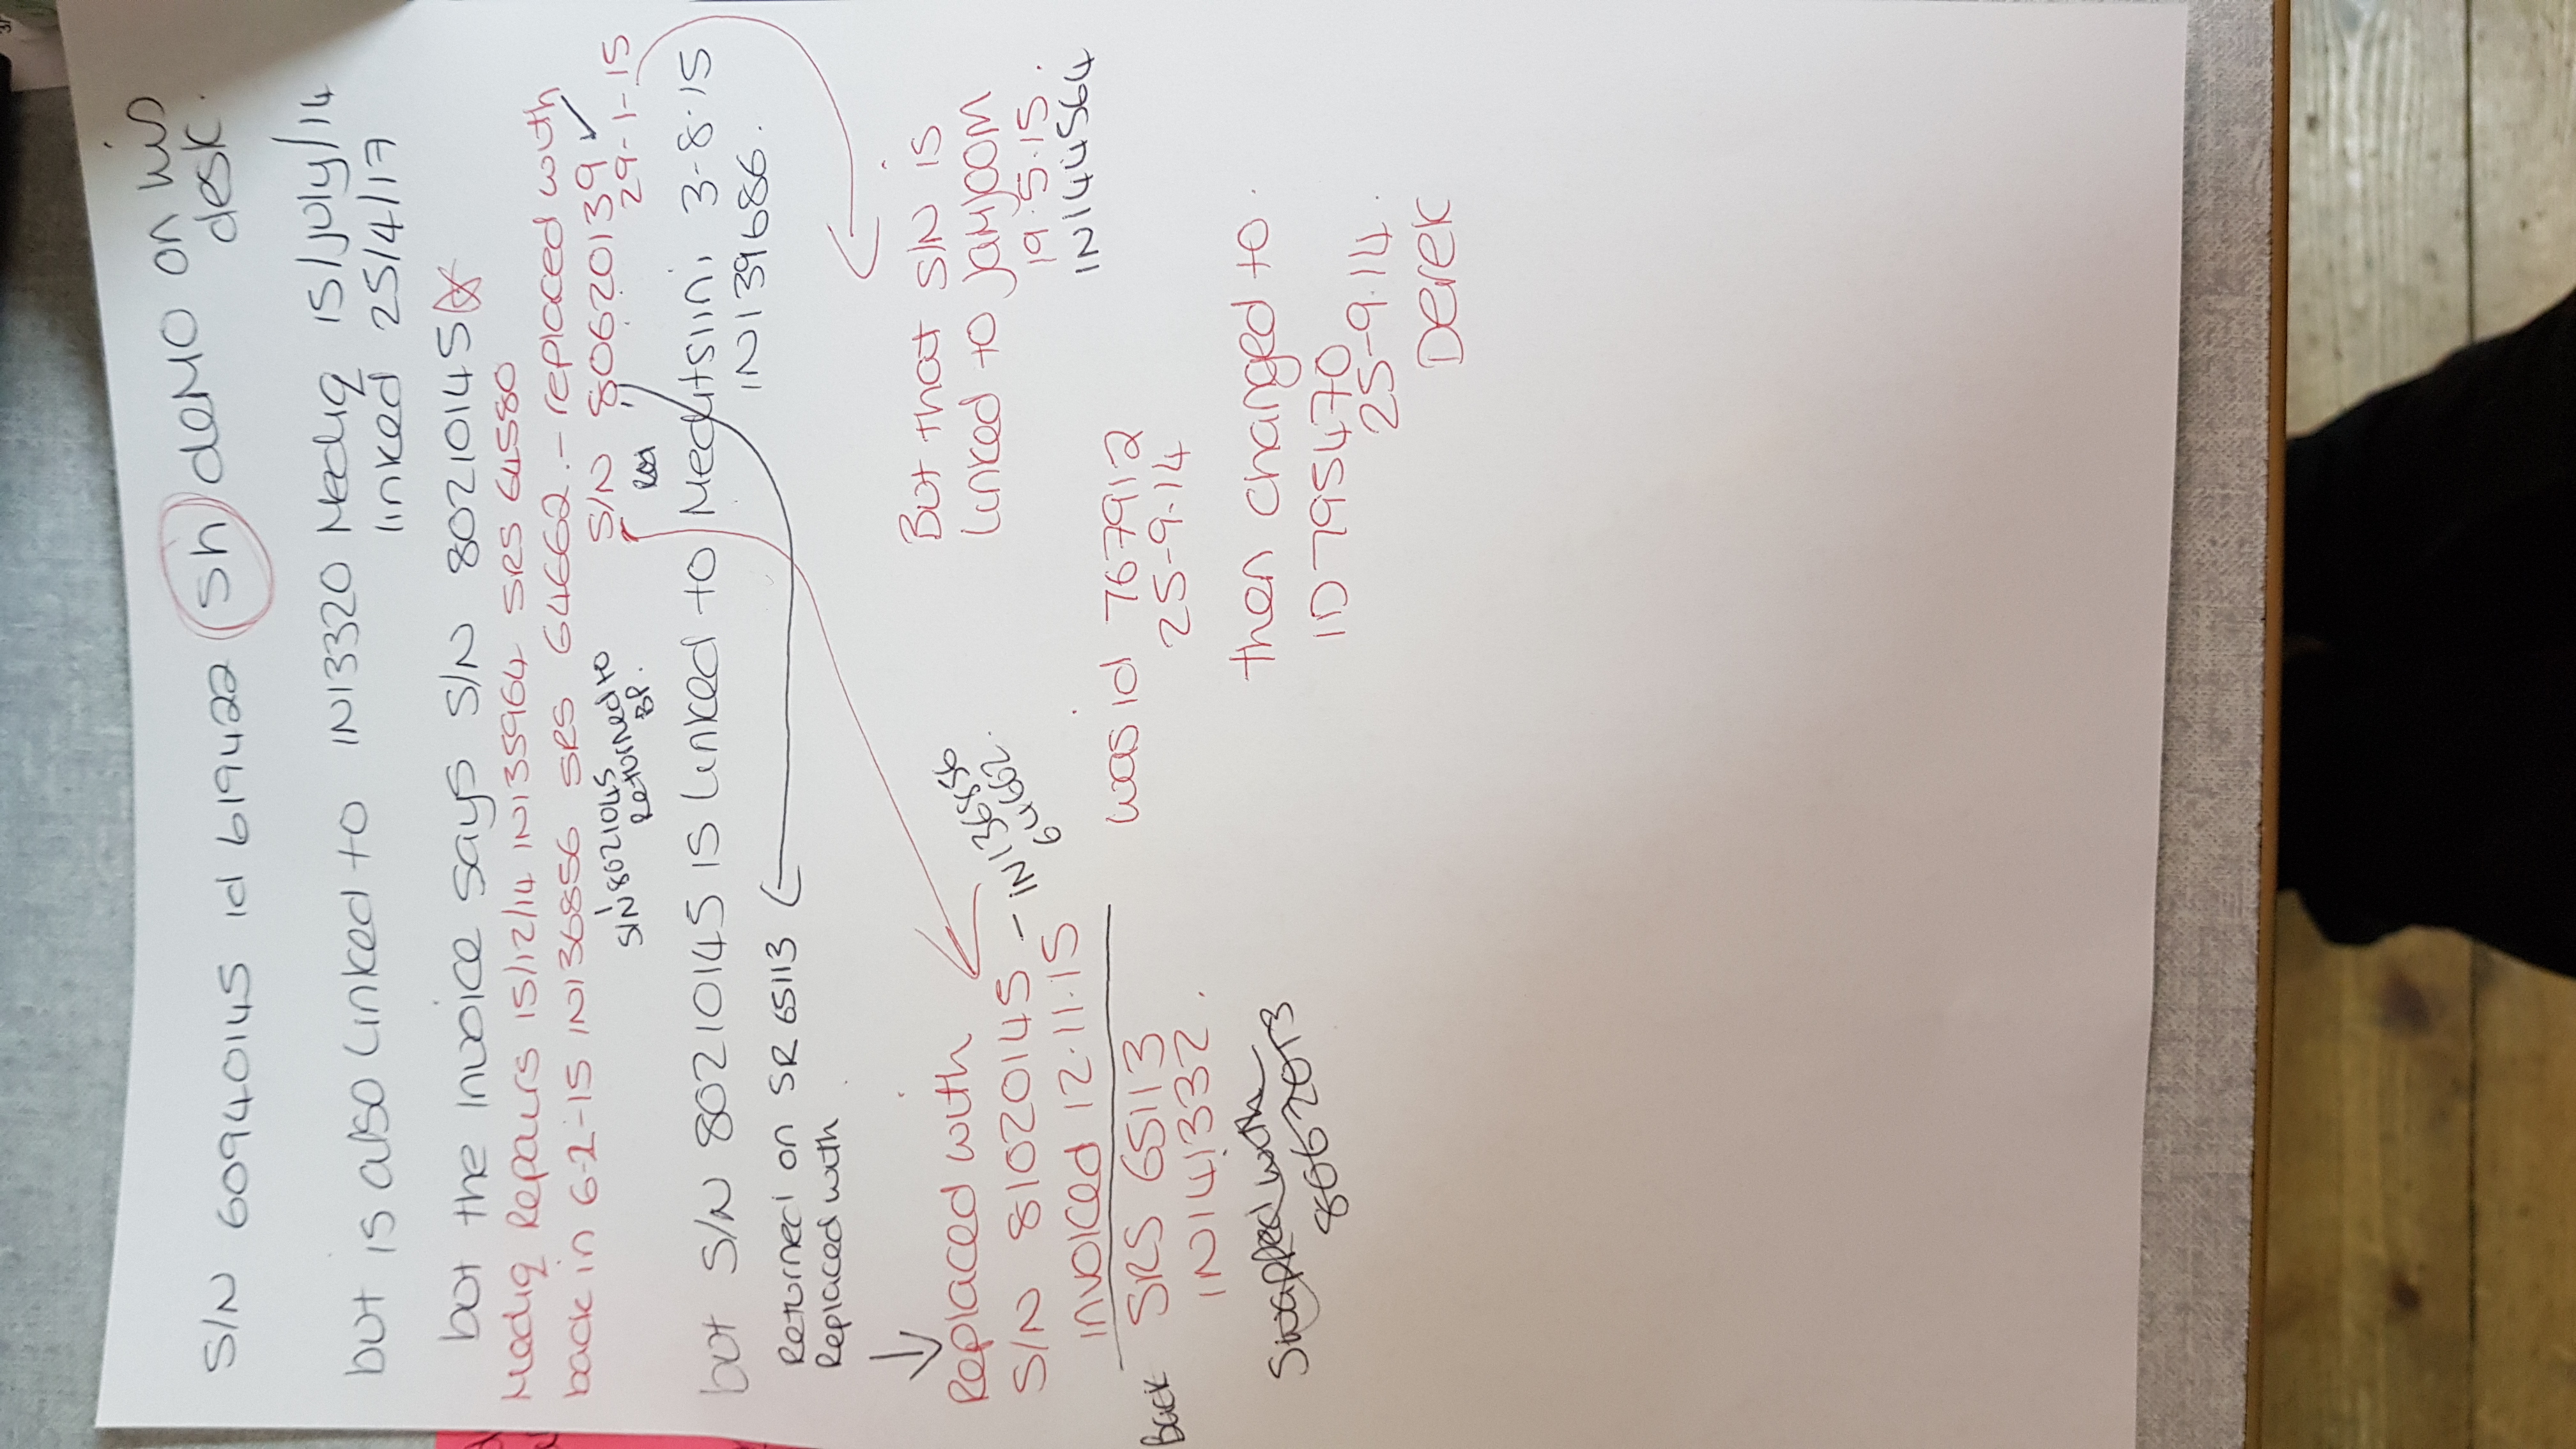 S/N 60940145 id 619422 (sh) demo on his
desk.
but is also linked to IN13320 Mediq 15/july/14
linked 25/4/17
but the invoice says S/N 80210145
Mediq Repairs 15/12/14 IN135964 SRS 64580
back in 6-2-15 IN136856 SRS 64662 - replaced with
S/N 80620139 ✓
29-1-15
S/N 80210145
Returned to
BP.
but S/N 80210145 is linked to Medutsiini 3-8-15
IN139686.
Returned on SR 65113
Replaced with
But that S/N is
linked to Jayjoom
19.5.15.
IN144564
Replaced with
S/N 81020145 - IN136856
64662.
invoiced 12.11.15
was id 767912
25-9-14
Back SRS 65113
IN141332.
then changed to.
ID 795470
25-9.14.
Derek
Swapped with